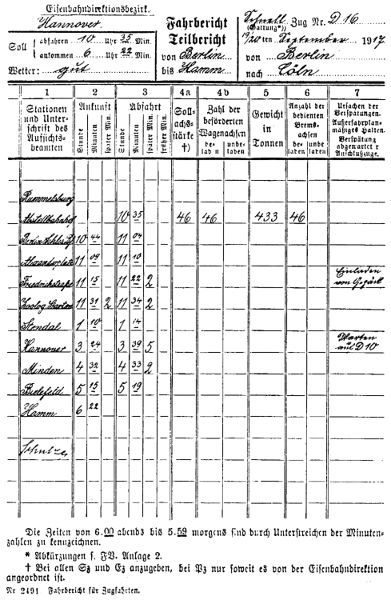 Eisenbahndirektionsbezirk.
Hannover
Soll abfahren 10 Uhr 35 Min.
ankommen 6 Uhr 22 Min.
Wetter: gut
Fahrbericht
Teilbericht
von Berlin
bis Hamm
Schnell Zug Nr. D 16
(Gattung*)
19/20ten September 1917
von Berlin
nach Cöln
1 2 3 4a 4b 5 6 7
Stationen und Unterschrift des Aufsichtsbeamten
Ankunft
Stunde Minuten später Min.
Abfahrt
Stunde Minuten früher Min. später Min.
Sollachsstärke †)
Zahl der beförderten Wagenachsen
beladen unbeladen
Gewicht in Tonnen
Anzahl der bedienten Bremsachsen
beladen unbeladen
Ursachen der Verspätungen. Außerfahrplanmäßiges Halten. Verspätung abgewarteter Anschlußzüge.
Rummelsburg
Abstellbahnhof 10 35 46 46 433 46
10 44 11 04
11 09 11 10
Friedrichstraße 11 15 11 22 2 Einladen von Gepäck
Zoolog Garten 11 31 2 11 34 2
Stendal 1 10 1 14
Hannover 3 24 3 39 5 Warten auf D 10
Minden 4 32 4 33 2
Bielefeld 5 15 5 19
Hamm 6 22
Schulze
Die Zeiten von 6.00 abends bis 5.59 morgens sind durch Unterstreichen der Minuten-
zahlen zu kennzeichnen.
* Abkürzungen s. FV. Anlage 2.
† Bei allen Sz und Ez anzugeben, bei Pz nur soweit es von der Eisenbahndirektion
angeordnet ist.
Nr 2491 Fahrbericht für Zugfahrten.